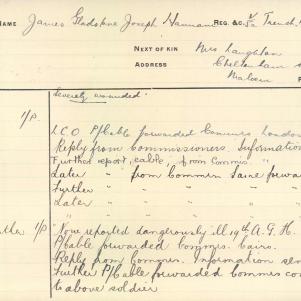 NAME James Gladstone Joseph Hannam REG. & C. Trench
NEXT OF KIN Mrs Laughton
ADDRESS Cheltenham
Malvern
Severely wounded
1/P. L C O P/Cable forwarded Commrs London
Reply from Commissioners. Information
Further report, cable, from Commis
Later " from Commrs same forwar
Further " " "
Later " " "
1/P "Now reported dangerously ill 19th A. G. H.
P/Cable forwarded Commrs. Cairo.
Reply from Commrs. Information sen
Further P/Cable forwarded Commrs con
to above soldier